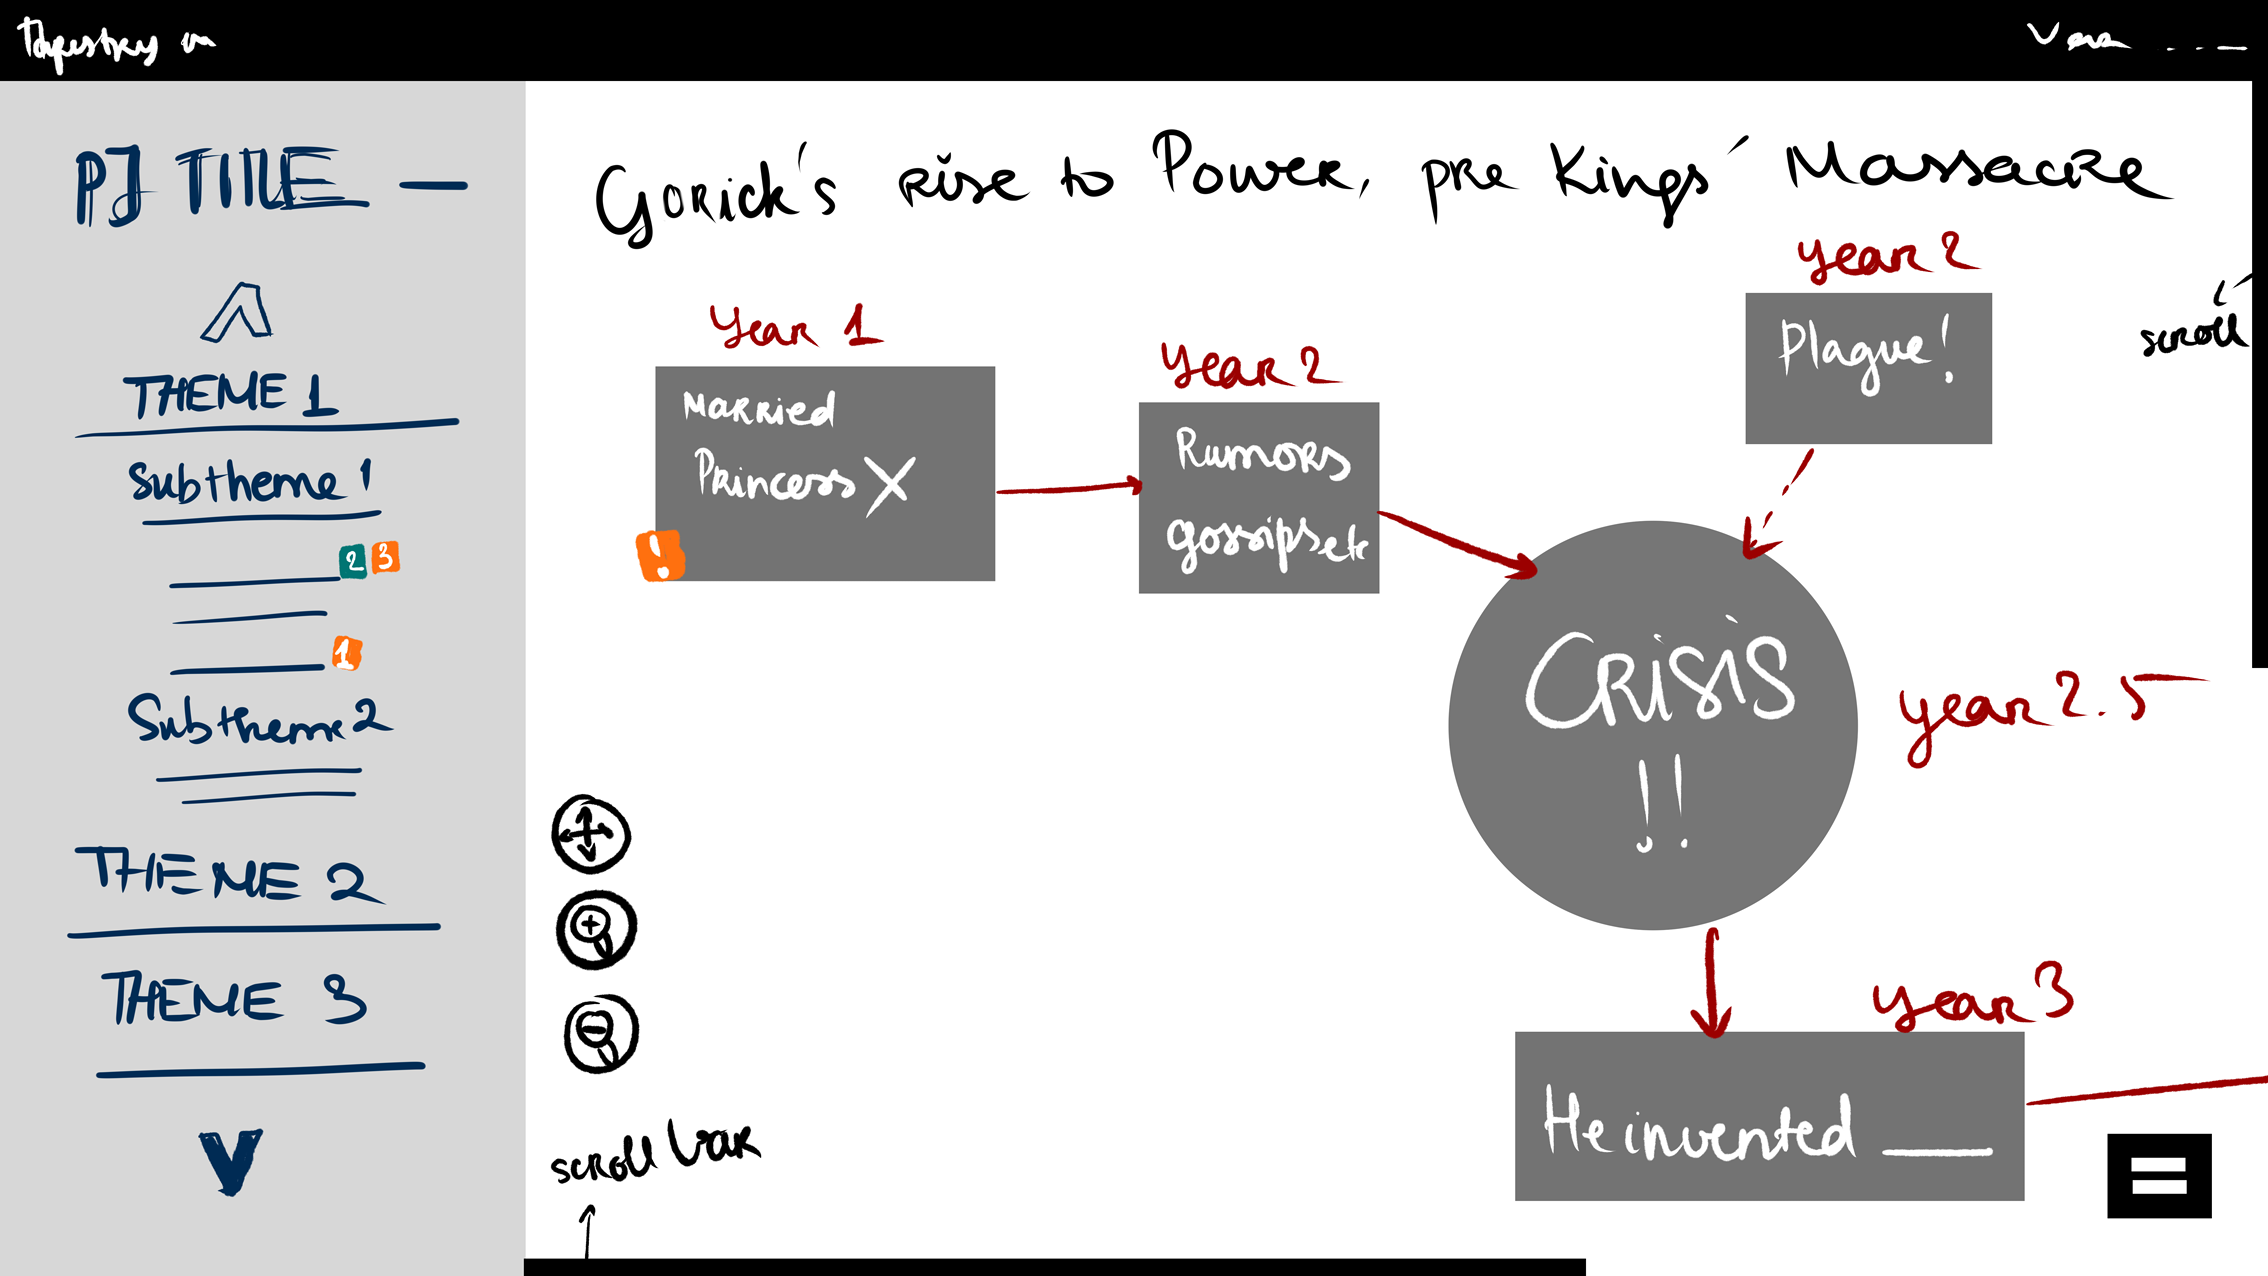 Tapestry
PJ TITLE —
THEME 1
Subtheme 1
2 3
1
Subtheme 2
THEME 2
THEME 3
Gorick's rise to Power, pre Kings' Massacre
Year 1
Married
Princess X
!
Year 2
Rumors
gossips etc
Year 2
Plague!
scroll
CRISIS
!!
year 2.5
year 3
He invented ___
scroll bar